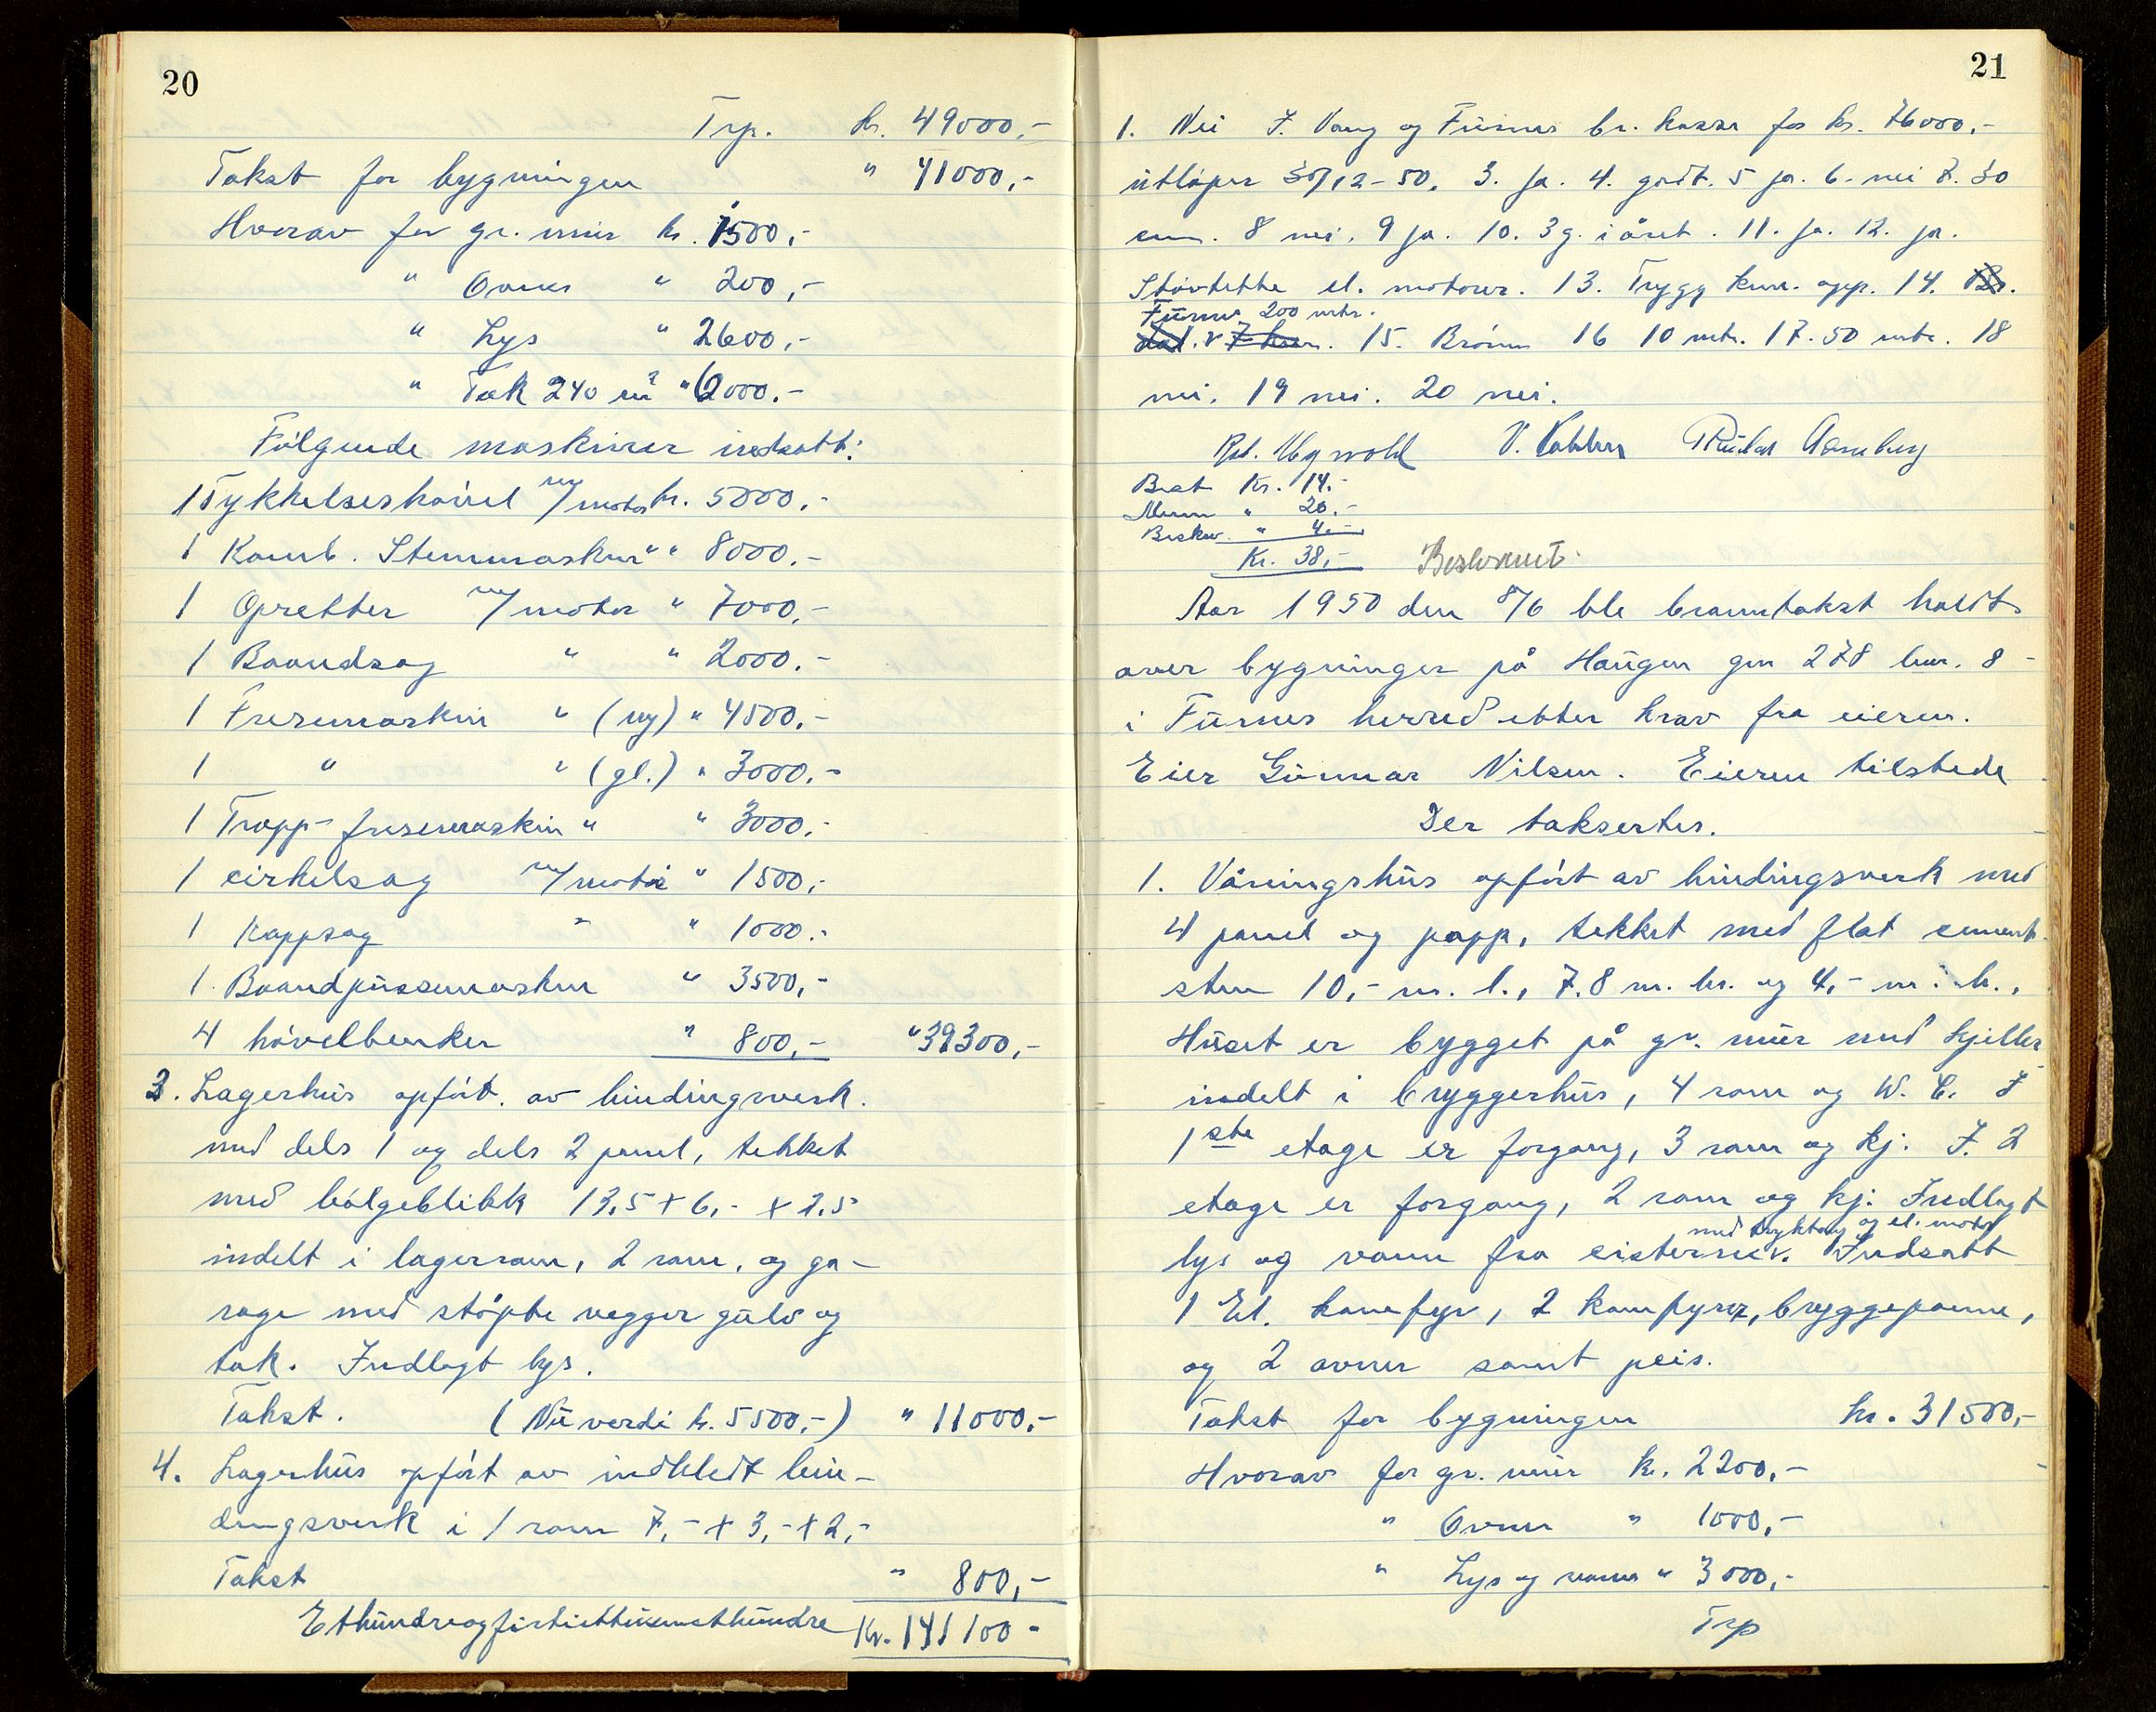 20
Trp. kr. 49000,-
Takst for bygningen " 41000,-
Hvorav for gr. mur kr. 1500,-
" Ovner " 200,-
" Lys " 2600,-
" Tak 240 m² " 2000.-
Følgende maskiner indsatt:
1 Tykkelseshøvel m/motor kr. 5000,-
1 Komb. Stemmaskin " " 8000,-
1 Opretter m/motor " 7000,-
1 Baandsag " " 2000.-
1 Fresemaskin " (ny) " 4500,-
1 " " (gl.) " 3000,-
1 Trapp-fresemaskin " " 3000,-
1 cirkelsag m/motor " 1500,-
1 Kappsag " " 1000.-
1 Baandpussemaskin " 3500,-
4 høvelbenker " 800,- " 39300,-
3. Lagerhus opført av bindingsverk.
med dels 1 og dels 2 panel, tekket
med bølgeblikk 13,5 + 6,- + 2,5
indelt i lagerrom, 2 rom, og ga-
rage med støpte vegger gulv og
tak. Indlagt lys.
Takst. (Nu verdi kr. 5500,-) " 11000,-
4. Lagerhus opført av indkledt bin-
dingsverk i 1 rom 7,- + 3,- + 2,-
Takst " 800,-
Ethundreogførtiettusenethundre Kr. 141100-
21
1. Nei I. Vang og Furnes br. kasse for kr. 76000,-
utløper 30/12-50. 3. ja. 4. godt. 5 ja. 6. nei 7. 30
cm. 8 nei. 9 ja. 10. 3 g. i året. 11. ja. 12. ja.
Støvtette el. motorer. 13. Trygg kun. opp. 14.
Furnes 200 mtr.
15. Brønn 16 10 mtr. 17. 50 mtr. 18
nei. 19 nei. 20 nei.
V.
Best Kr. 14.-
" 20.-
Beskr. " 4.-
Kr. 38,-
Aar 1950 den 8/6 ble branntakst holdt
over bygninger på Haugen gnr 278 bnr. 8-
i Furnes herred etter krav fra eieren.
Eier Gunnar Nilsen. Eieren tilstede
Der taksertes.
1. Våningshus opført av bindingsverk med
4 panel og papp, tekket med flat cement-
sten 10,- m. l., 7.8 m. br. og 4,- m. h.,
Huset er bygget på gr. mur med kjeller
indelt i bryggerhus, 4 rom og W. C. I
1ste etage er forgang, 3 rom og kj. I. 2
etage er forgang, 2 rom og kj. Indlagt
med tryktank og el. motor
lys og vann fra cisterne. Indsatt
1 El. komfyr, 2 komfyrer, bryggepanne,
og 2 ovner samt peis.
Takst for bygningen kr. 31500,-
Hvorav for gr. mur kr. 2200,-
" Ovner " 1000,-
" Lys og vann " 3000,-
Trp